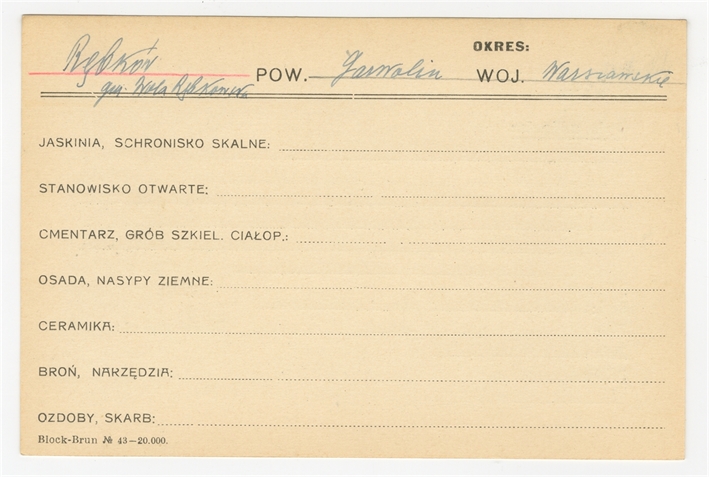 OKRES:
Rębków POW. Garwolin WOJ. Warszawskie
gm. Wola Rębkowska
JASKINIA, SCHRONISKO SKALNE:
STANOWISKO OTWARTE:
CMENTARZ, GRÓB SZKIEL. CIAŁOP.:
OSADA, NASYPY ZIEMNE:
CERAMIKA:
BROŃ, NARZĘDZIA:
OZDOBY, SKARB:
Block-Brun № 43—20.000.